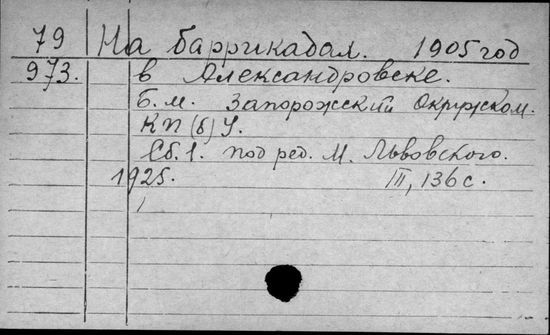 79 На баррикадах. 1905 год
973. в Александровске.
Б.м. Запорожский Окружком.
КП(б)У.
Сб.1. под ред. М. Львовского.
1925. III, 136 с.